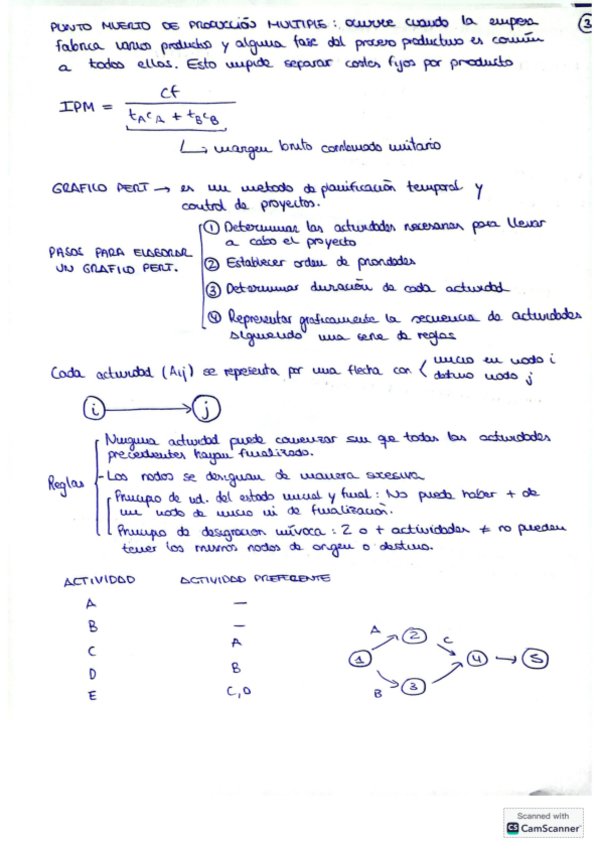 3
PUNTO MUERTO DE PRODUCCIÓN MULTIPLE: ocurre cuando la empresa
fabrica varios productos y alguna fase del proceso productivo es común
a todos ellos. Esto impide separar costes fijos por producto
IPM = Cf / tA CA + tB CB
↳ margen bruto combinado unitario
GRAFICO PERT → es un metodo de planificación temporal y
control de proyectos.
PASOS PARA ELABORAR
UN GRAFICO PERT.
① Determinar las actividades necesarias para llevar
a cabo el proyecto
② Establecer orden de prioridades
③ Determinar duración de cada actividad
④ Representar graficamente la secuencia de actividades
siguiendo una serie de reglas
Cada actividad (Aij) se representa por una flecha con < inicio en nodo i
destino nodo j
i → j
Reglas
Ninguna actividad puede comenzar sin qe todas las actividades
precedentes hayan finalizado.
- Los nodos se designan de manera
Principio de ud. del estado inicial y final: No puede haber + de
un nodo de inicio ni de finalización.
Principio de designacion unívoca: 2 o + actividades ≠ no pueden
tener los mismos nodos de origen o destino.
ACTIVIDAD ACTIVIDAD PREFERENTE
A —
B —
C A
D B
E C, D
A 2 C
1 4 → 5
B 3
Scanned with
CS CamScanner